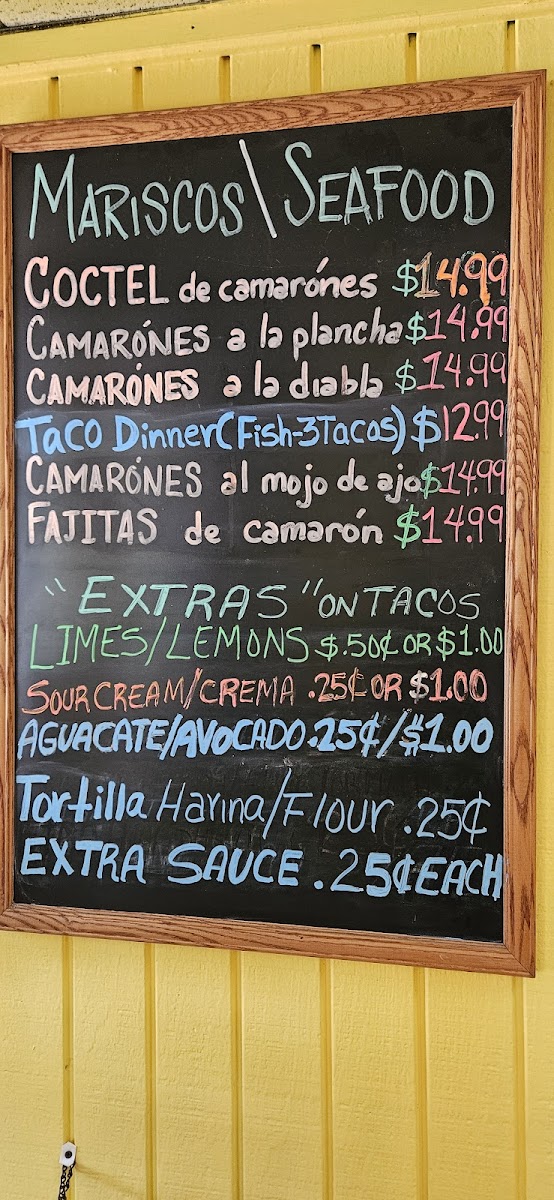 MARISCOS\SEAFOOD
COCTEL de camarónes $14.99
CAMARÓNES a la plancha $14.99
CAMARÓNES a la diabla $14.99
Taco Dinner(Fish-3Tacos) $12.99
CAMARÓNES al mojo de ajo $14.99
FAJITAS de camarón $14.99
"EXTRAS" ON TACOS
LIMES/LEMONS $.50¢ OR $1.00
SOUR CREAM/CREMA .25¢ OR $1.00
AGUACATE/AVOCADO .25¢/$1.00
Tortilla Harina/Flour .25¢
EXTRA SAUCE .25¢ EACH